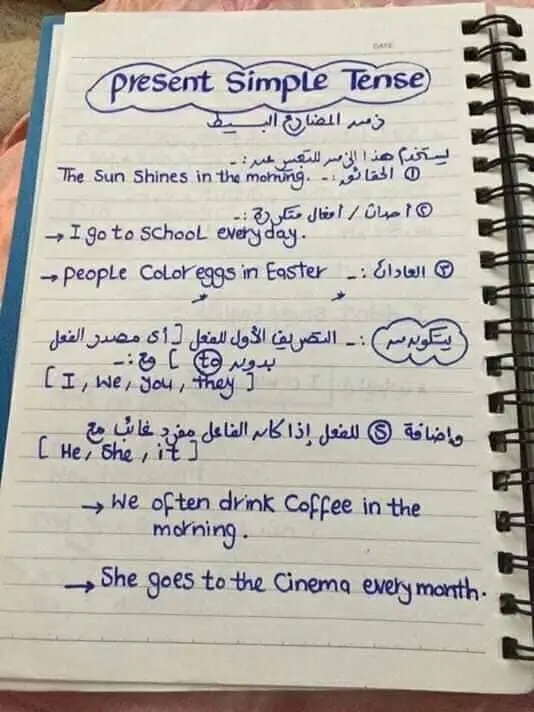 DATE
present Simple Tense
زمن المضارع البسيط
يستخدم هذا الزمن للتعبير عن :-
① الحقائق :- The Sun Shines in the morning.
② أحداث / أفعال متكررة :-
→ I go to School every day.
③ العادات :- → people Color eggs in Easter
يتكون من :- التصريف الأول للفعل [ أى مصدر الفعل
بدون to ] مع :-
[ I, we, you, they ]
واضافة Ⓢ للفعل إذا كان الفاعل مفرد غائب مع
[ He, She, it ]
→ We often drink Coffee in the
morning.
→ She goes to the Cinema every month.